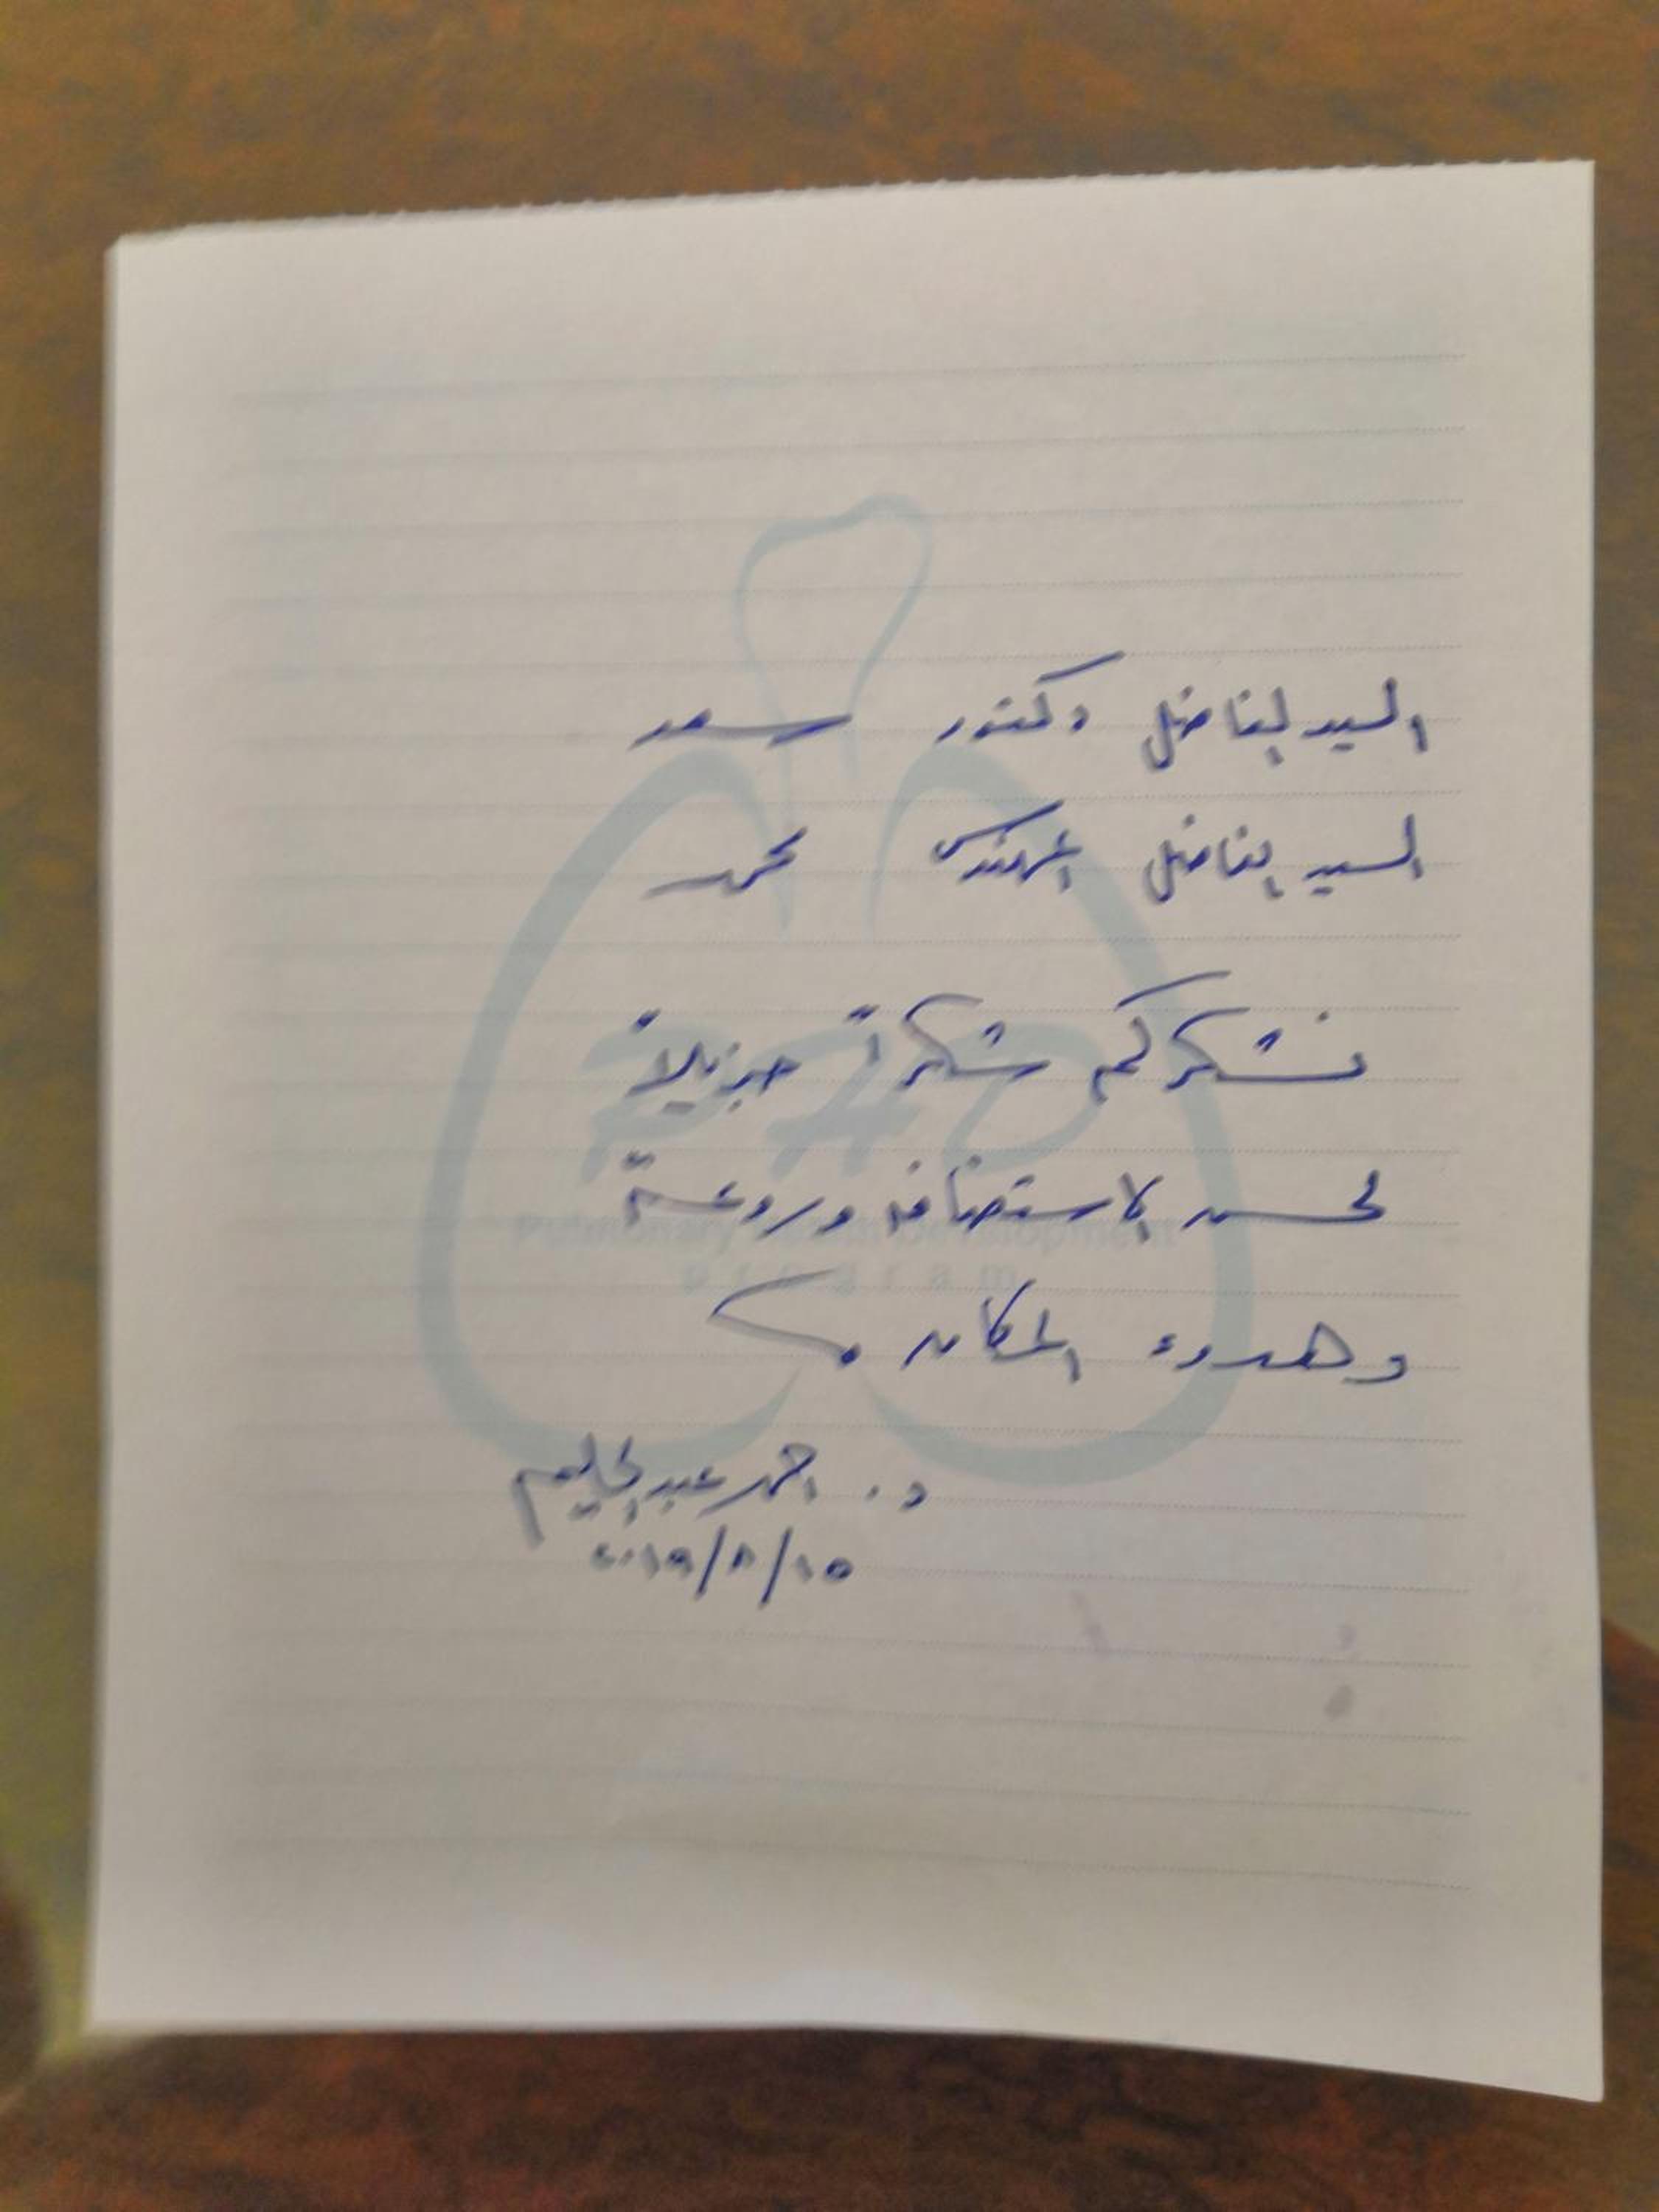 السيد الفاضل دكتور سعد
السيد الفاضل المهندس محمد
نشكركم شكراً جزيلاً
لحسن الاستضافه وروعة
وهدوء المكان
د. احمد عبد الحليم
٢٠١٩/٨/١٥
PHD
Pulmonary Health Development
program